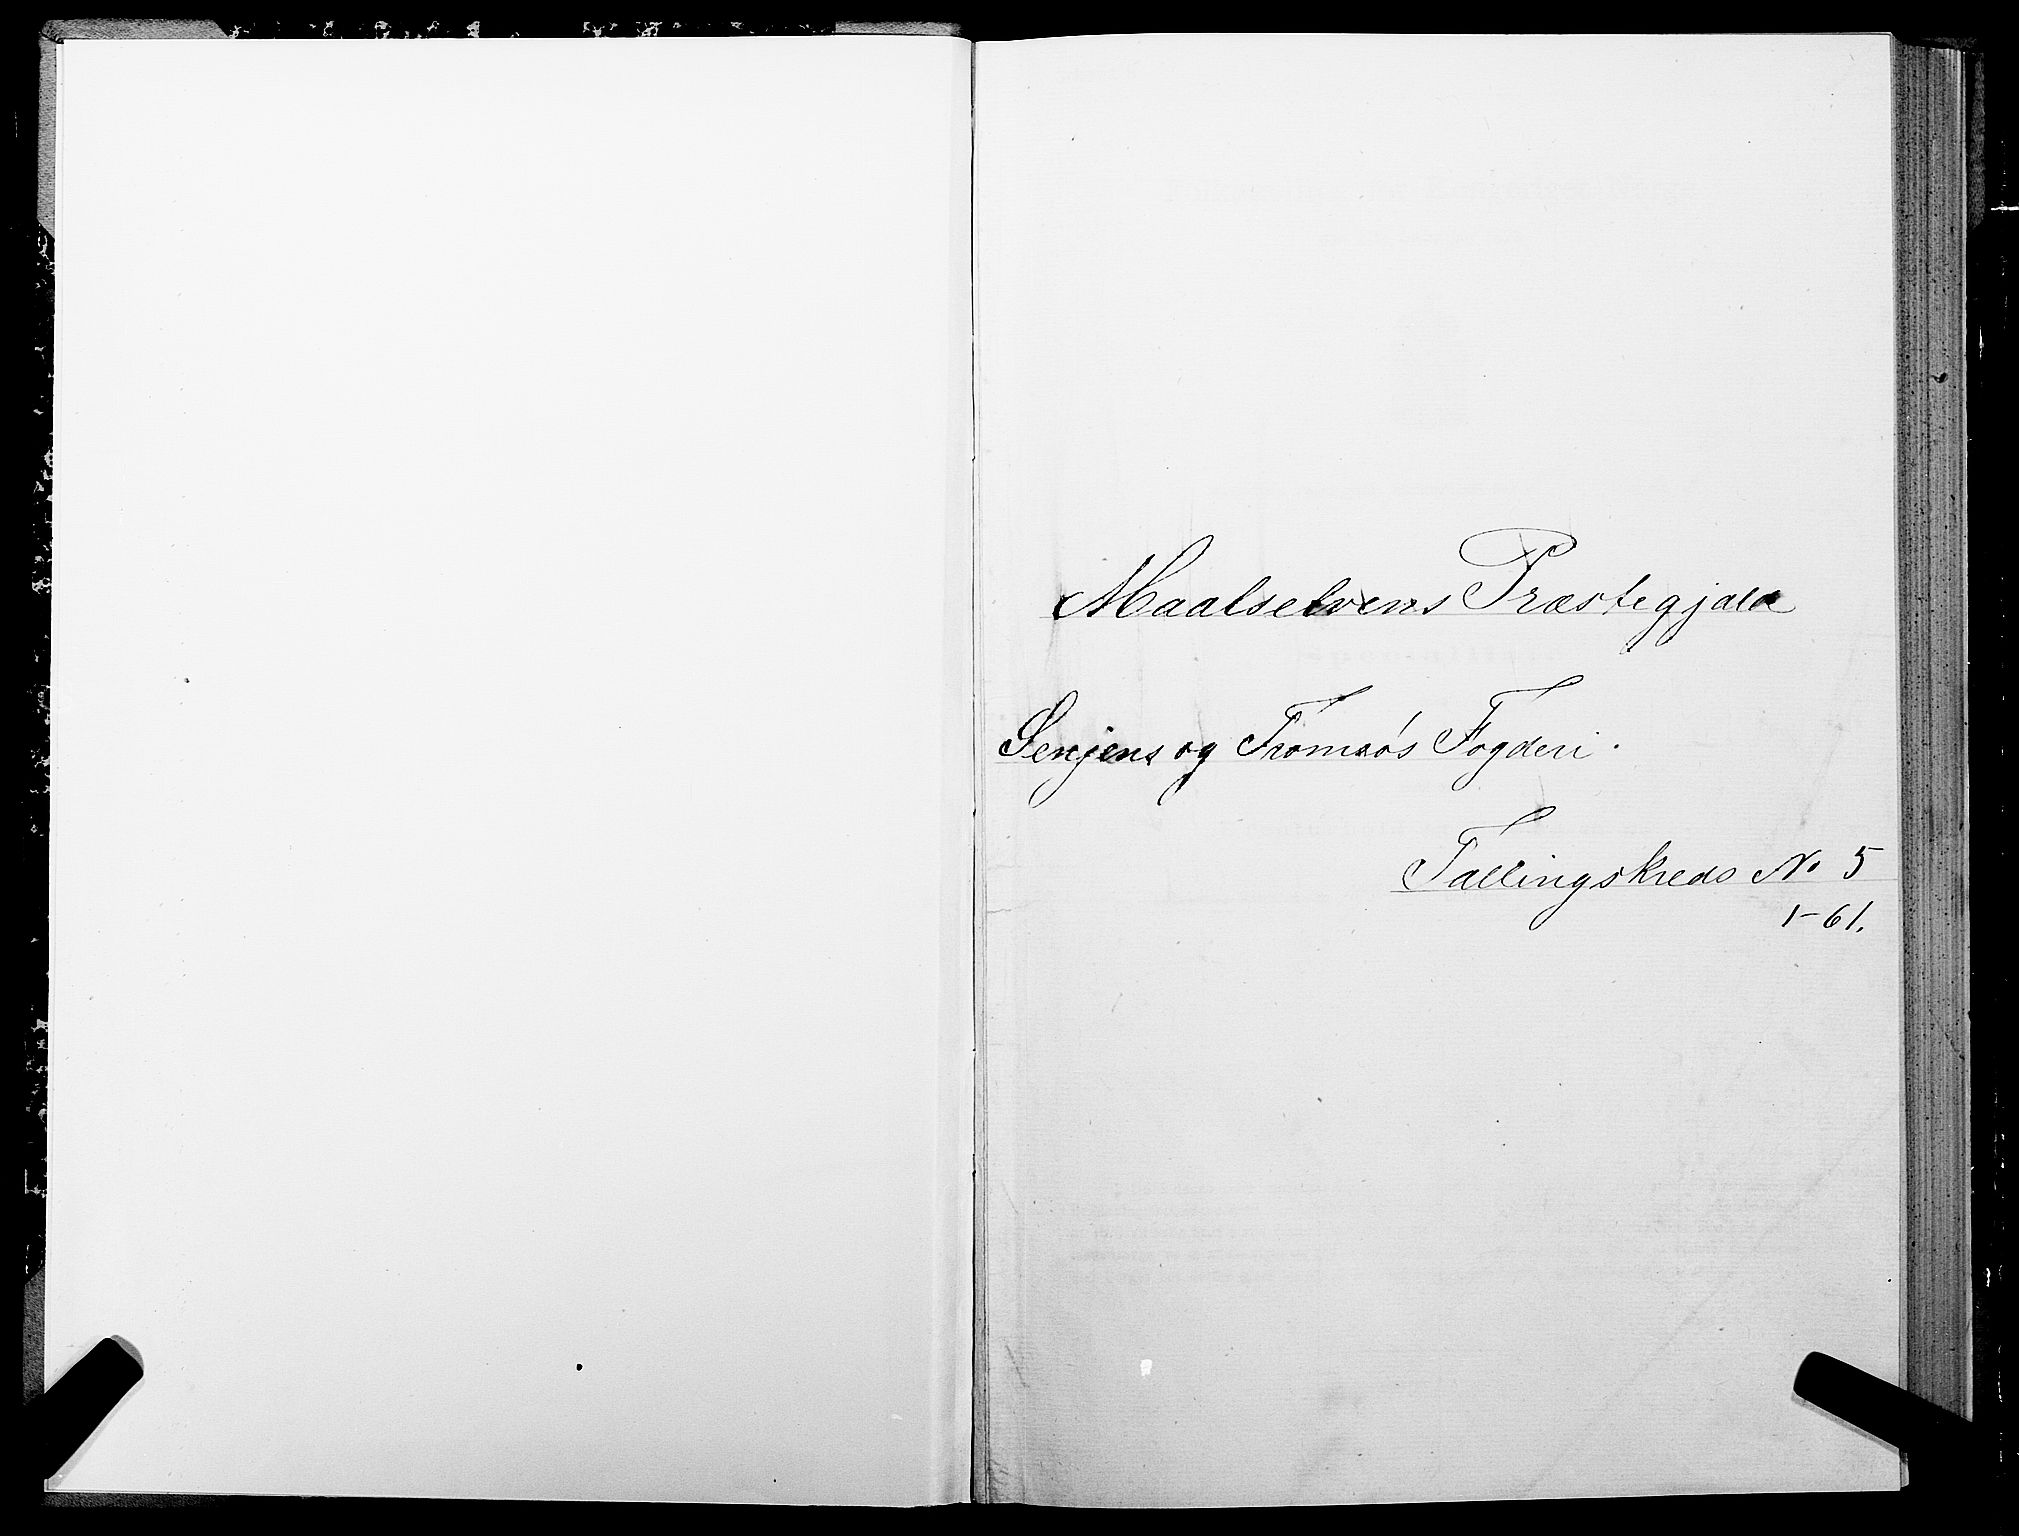 Maalselvens Præstegjæld
Senjens og Tromsøs Fogderi.
Tællingskreds No 5
1-61.